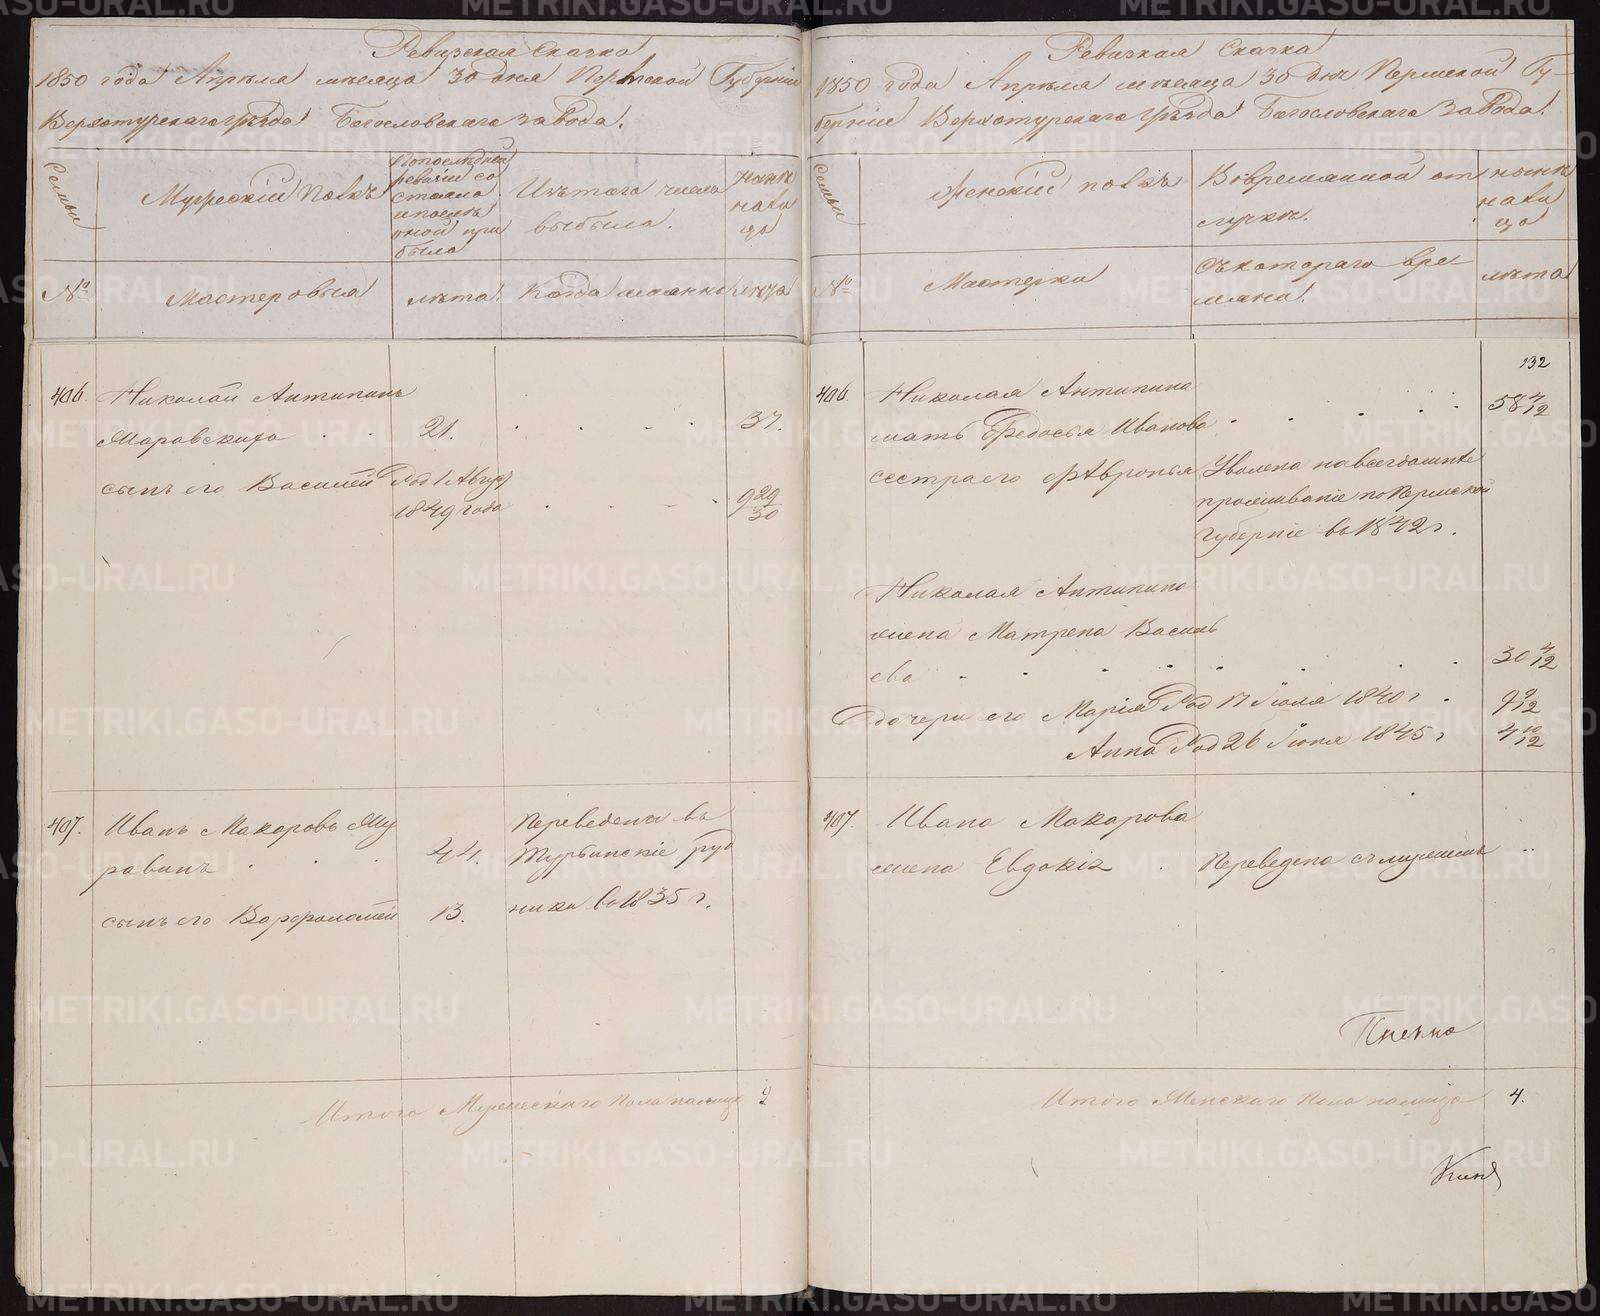 Ревизская Сказка
1850 года Апреля месяца 30 дня Пермской Губерніи
Верхотурскаго Уезда Богословскаго завода.
Семьи
Мужескій Полъ
По последней ревизіи состояло и после оной прибыло
Изъ того числа выбыло.
Ныне на лицо
№
Мастеровыя
лета.
Когда именно
лета
406.
Николай Антипинъ
Маровскихъ . . 21. . . . . 37.
сынъ его Василей Род 1 Авгус
1849 года . . . . 9 29/30
407.
Иванъ Макаровъ Му
равинъ . . . 44.
сынъ его Варфоломей 13.
Переведены въ
Турьинскіе руд
ники въ 1835 г.
Итого Мужескаго Пола налицо 2
Ревизкая Сказка
1850 года Апреля месяца 30 дня Пермской Гу-
берніи Верхотурскаго Уезда Богословскаго Завода.
Семьи
Женскій полъ
Во временной от
лучке.
ныне
на ли
цо
№
Мастерки
Съ котораго вре
мяни.
лета
132
406.
Николая Антипина
мать Федосья Иванова . . . . . 58 4/12
сестра его Февронья
Уволена на всегдашнее
проживаніе по Пермской
Губерніе въ 1842 г.
Николая Антипина
жена Матрена Василь
ева . . . . . . . . 30 4/12
дочери его Марія Род 17 Іюля 1840 г . 9 9/12
Анна Род 26 Іюня 1845 г 4 10/12
407.
Ивана Макарова
жена Евдокія . Переведена съ мужемъ ..
Итого Женскаго Пола налицо 4.